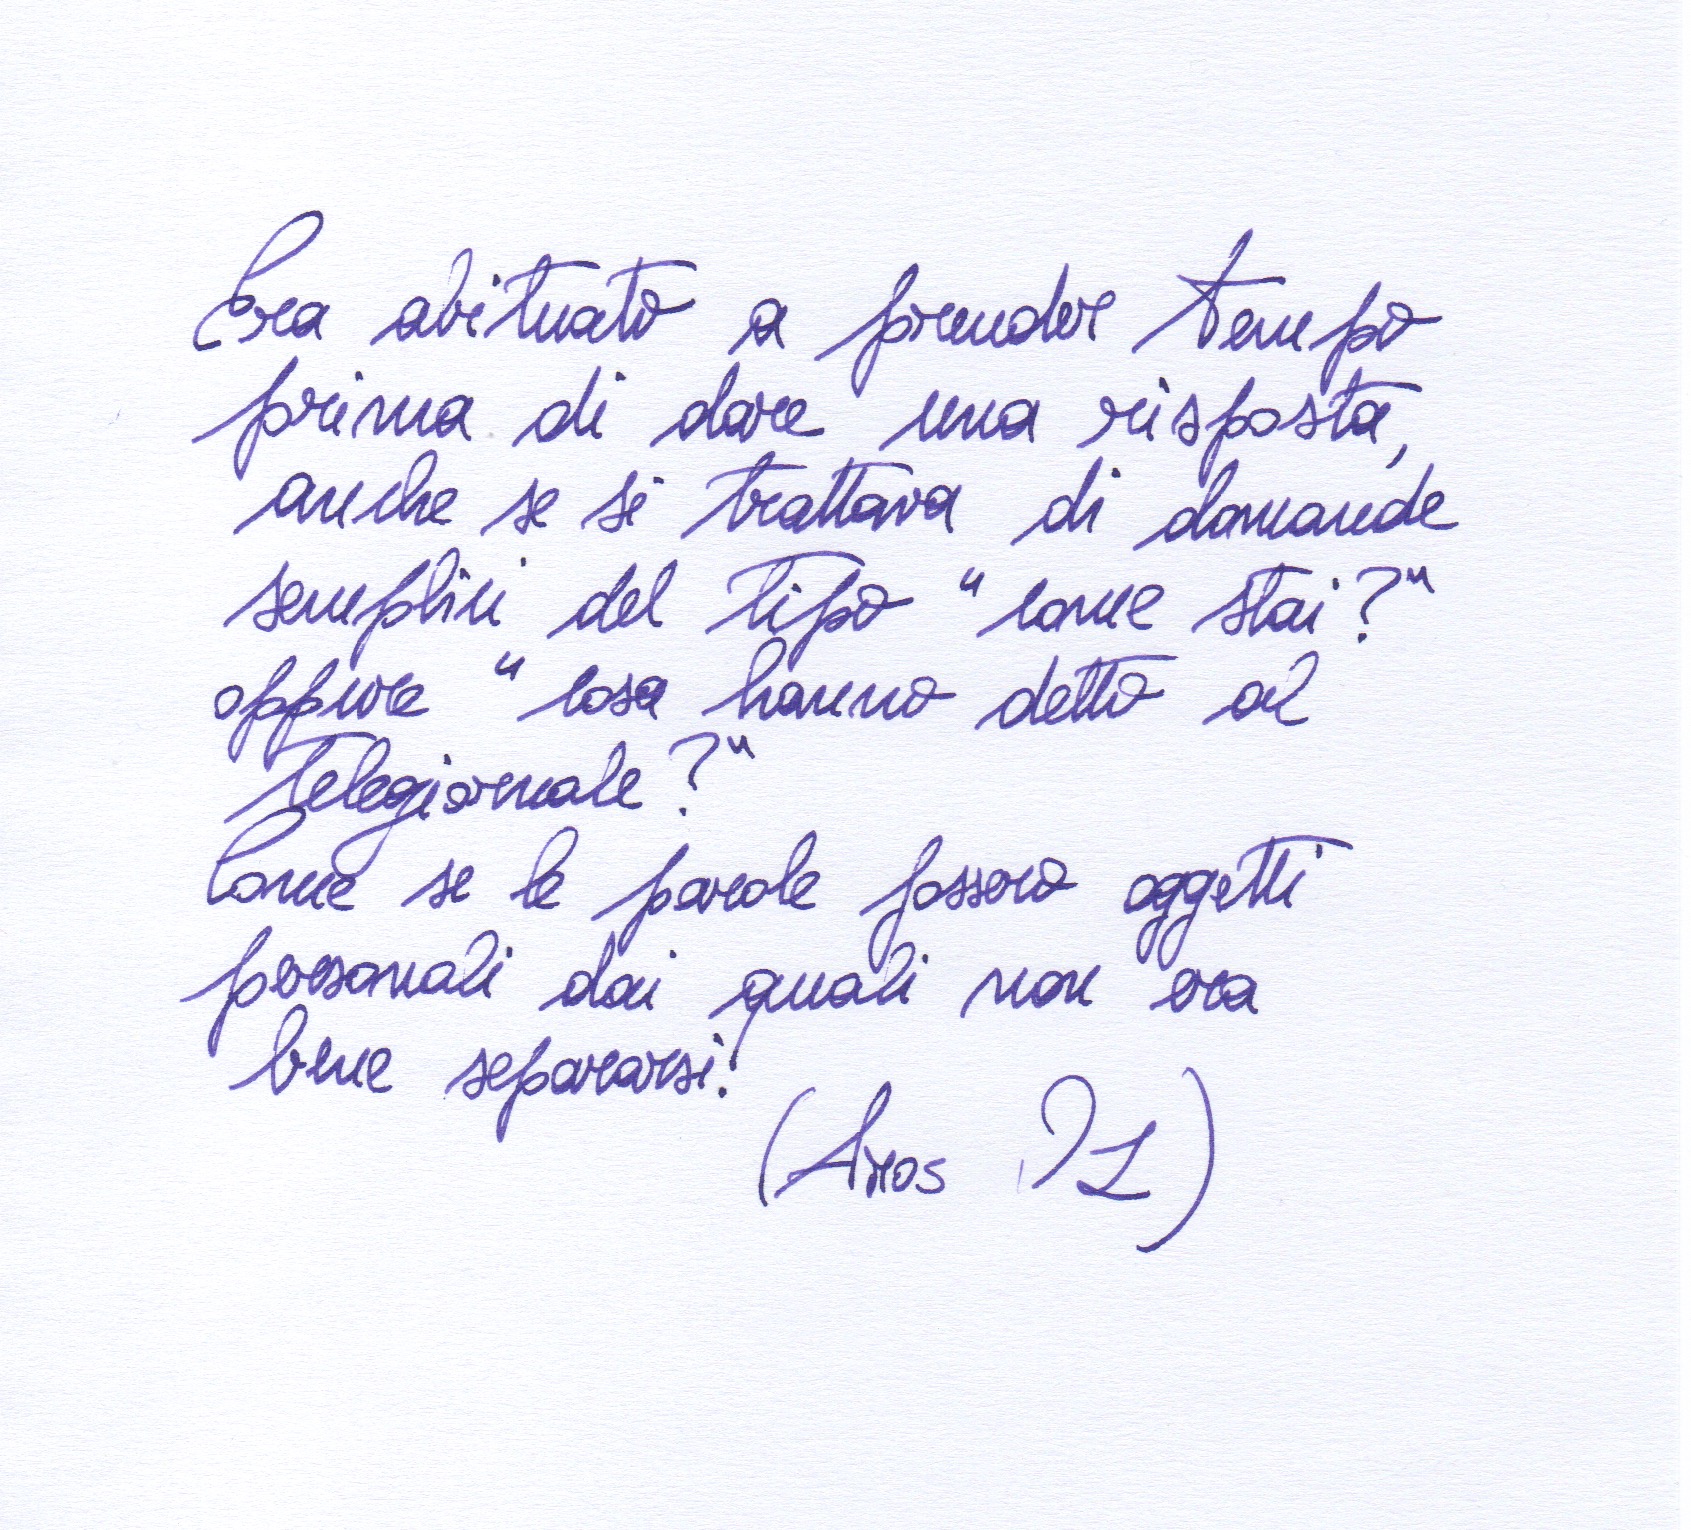 Era abituato a prender tempo
prima di dare una risposta,
anche se si trattava di domande
semplici del tipo "come stai?"
oppure "cosa hanno detto al
telegiornale?"
Come se le parole fossero oggetti
personali dai quali non era
bene separarsi!
(Aros)